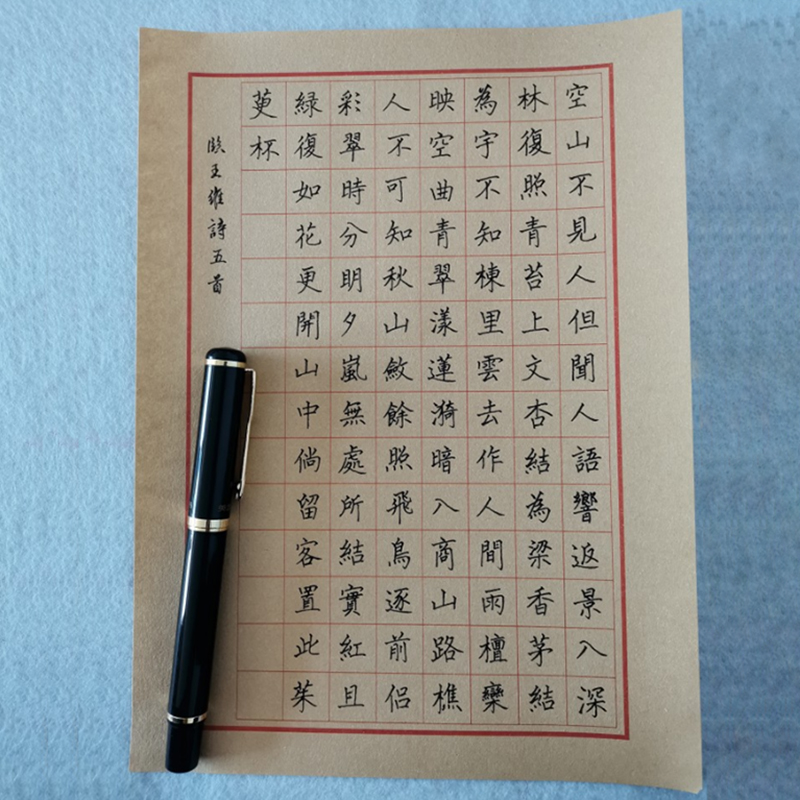 空山不見人但聞人語響返景入深
林復照青苔上文杏結為梁香茅結
為宇不知棟里雲去作人間雨檀欒
映空曲青翠漾蓮漪暗入商山路樵
人不可知秋山斂餘照飛鳥逐前侶
彩翠時分明夕嵐無處所結實紅且
緑復如花更開山中倘留客置此茱
萸杯
臨王維詩五首